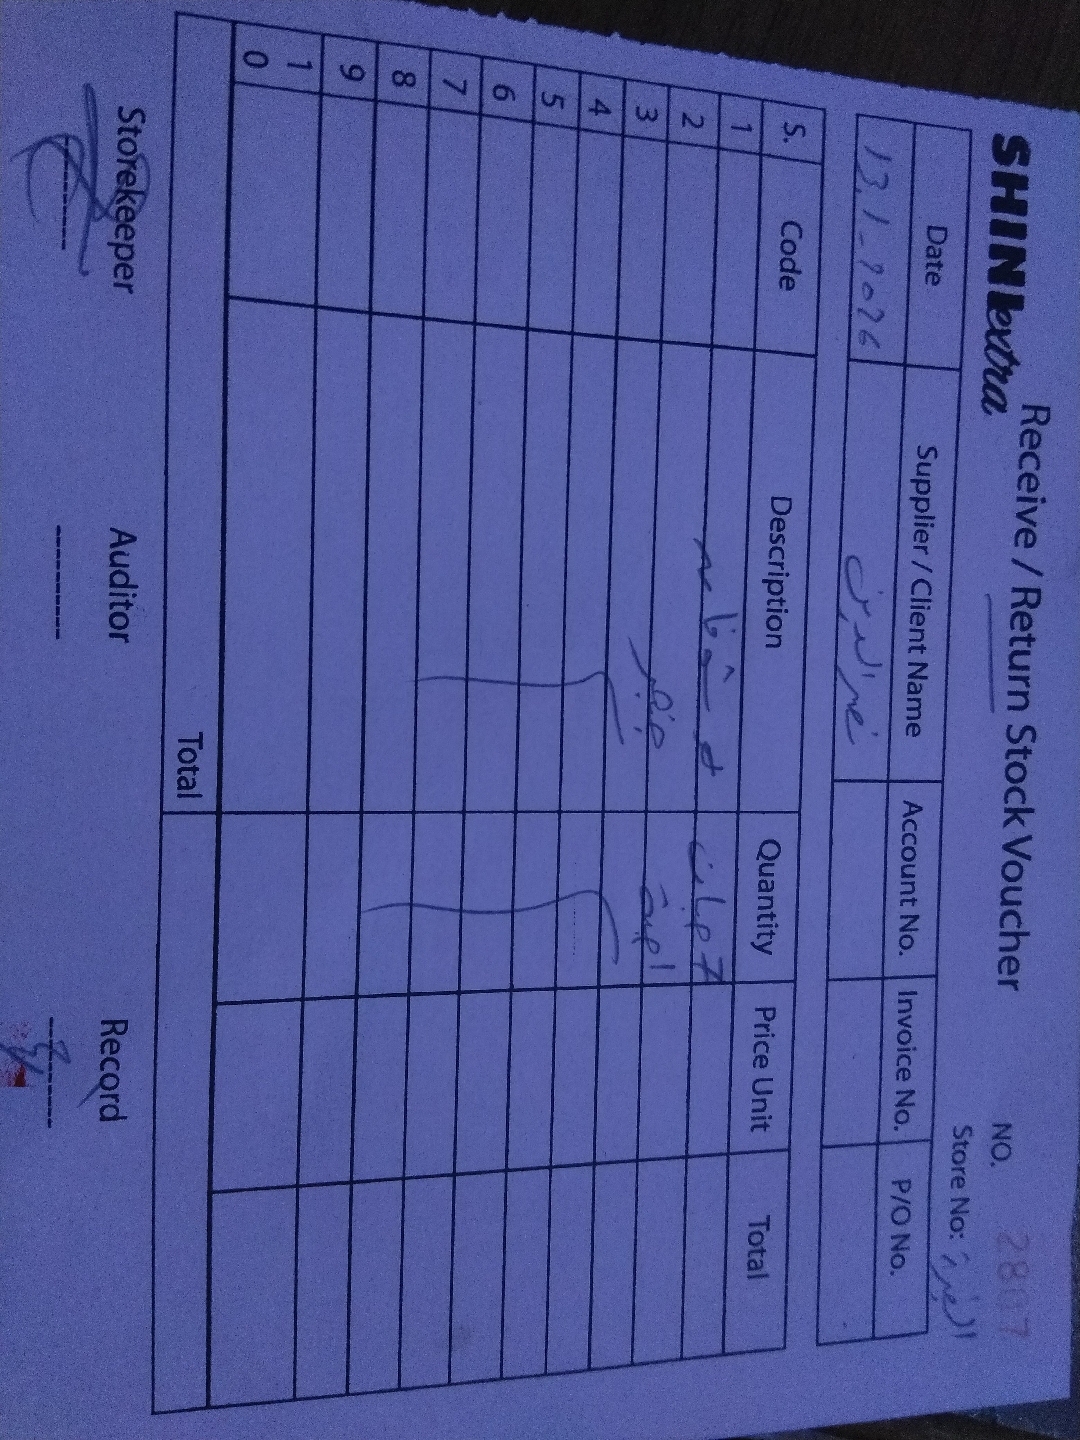 Receive / Return Stock Voucher
NO. 2807
SHINE extra
Store No: الجيزة
Date Supplier / Client Name Account No. Invoice No. P/O No.
13-1-2026
S. Code Description Quantity Price Unit Total
1
2
3
4
5
6
7
8
9
10
Total
Storekeeper Auditor Record